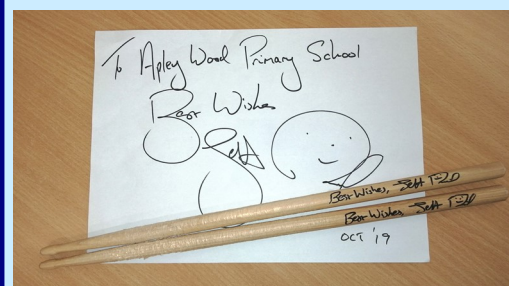 To Apley Wood Primary School
Best Wishes
Best Wishes,
Best Wishes
OCT '19